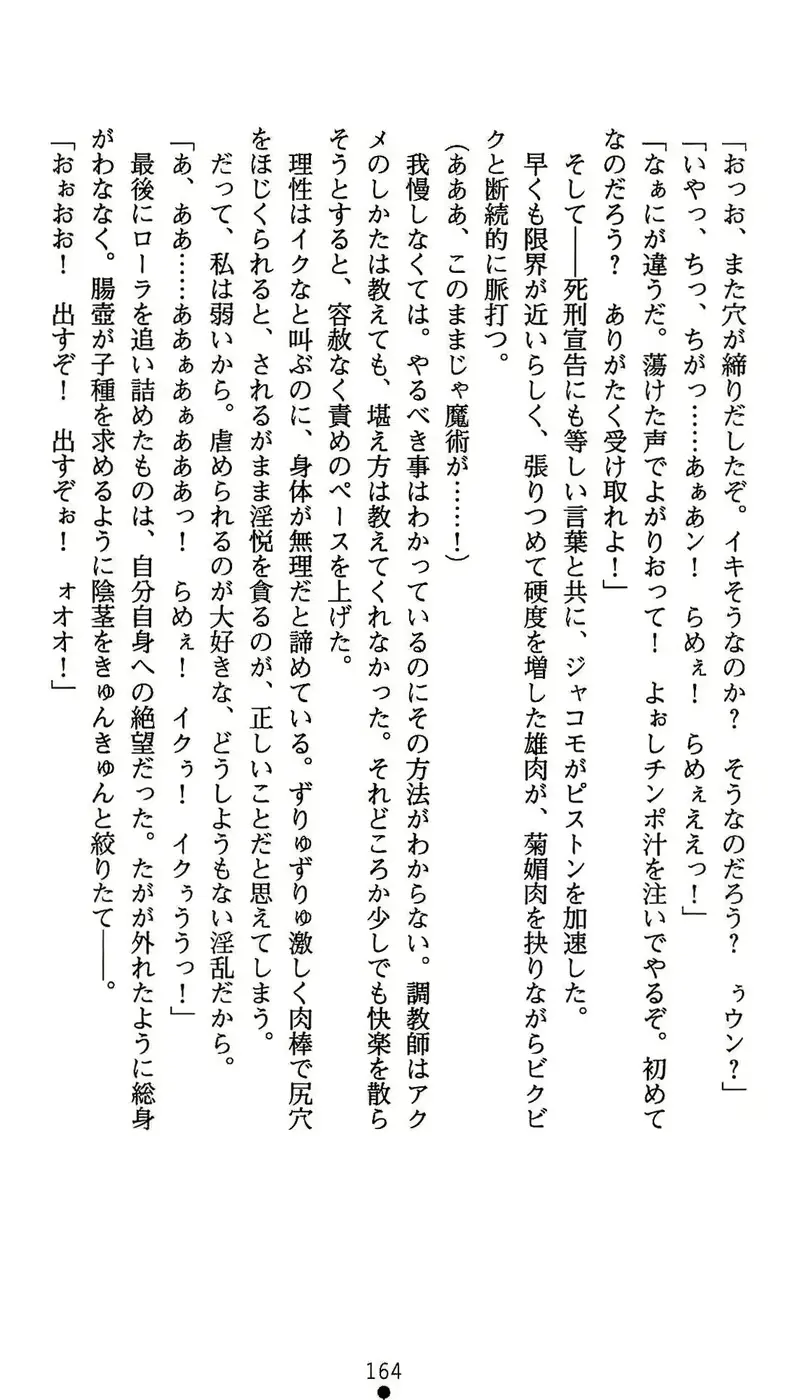 「おっお、また穴が締りだしたぞ。イキそうなのか？　そうなのだろう？　ぅウン？」
「いやっ、ちっ、ちがっ……あぁあン！　らめぇ！　らめぇええっ！」
「なぁにが違うだ。蕩けた声でよがりおって！　よぉしチンポ汁を注いでやるぞ。初めて
なのだろう？　ありがたく受け取れよ！」
　そして――死刑宣告にも等しい言葉と共に、ジャコモがピストンを加速した。
　早くも限界が近いらしく、張りつめて硬度を増した雄肉が、菊媚肉を抉りながらビクビ
クと断続的に脈打つ。
（あああ、このままじゃ魔術が……！）
　我慢しなくては。やるべき事はわかっているのにその方法がわからない。調教師はアク
メのしかたは教えても、堪え方は教えてくれなかった。それどころか少しでも快楽を散ら
そうとすると、容赦なく責めのペースを上げた。
　理性はイクなと叫ぶのに、身体が無理だと諦めている。ずりゅずりゅ激しく肉棒で尻穴
をほじくられると、されるがまま淫悦を貪るのが、正しいことだと思えてしまう。
　だって、私は弱いから。虐められるのが大好きな、どうしようもない淫乱だから。
「あ、ああ……ああぁあぁあああっ！　らめぇ！　イクぅ！　イクぅううっ！」
　最後にローラを追い詰めたものは、自分自身への絶望だった。たがが外れたように総身
がわななく。腸壺が子種を求めるように陰茎をきゅんきゅんと絞りたて――。
「おぉおお！　出すぞ！　出すぞぉ！　ォオオ！」
164